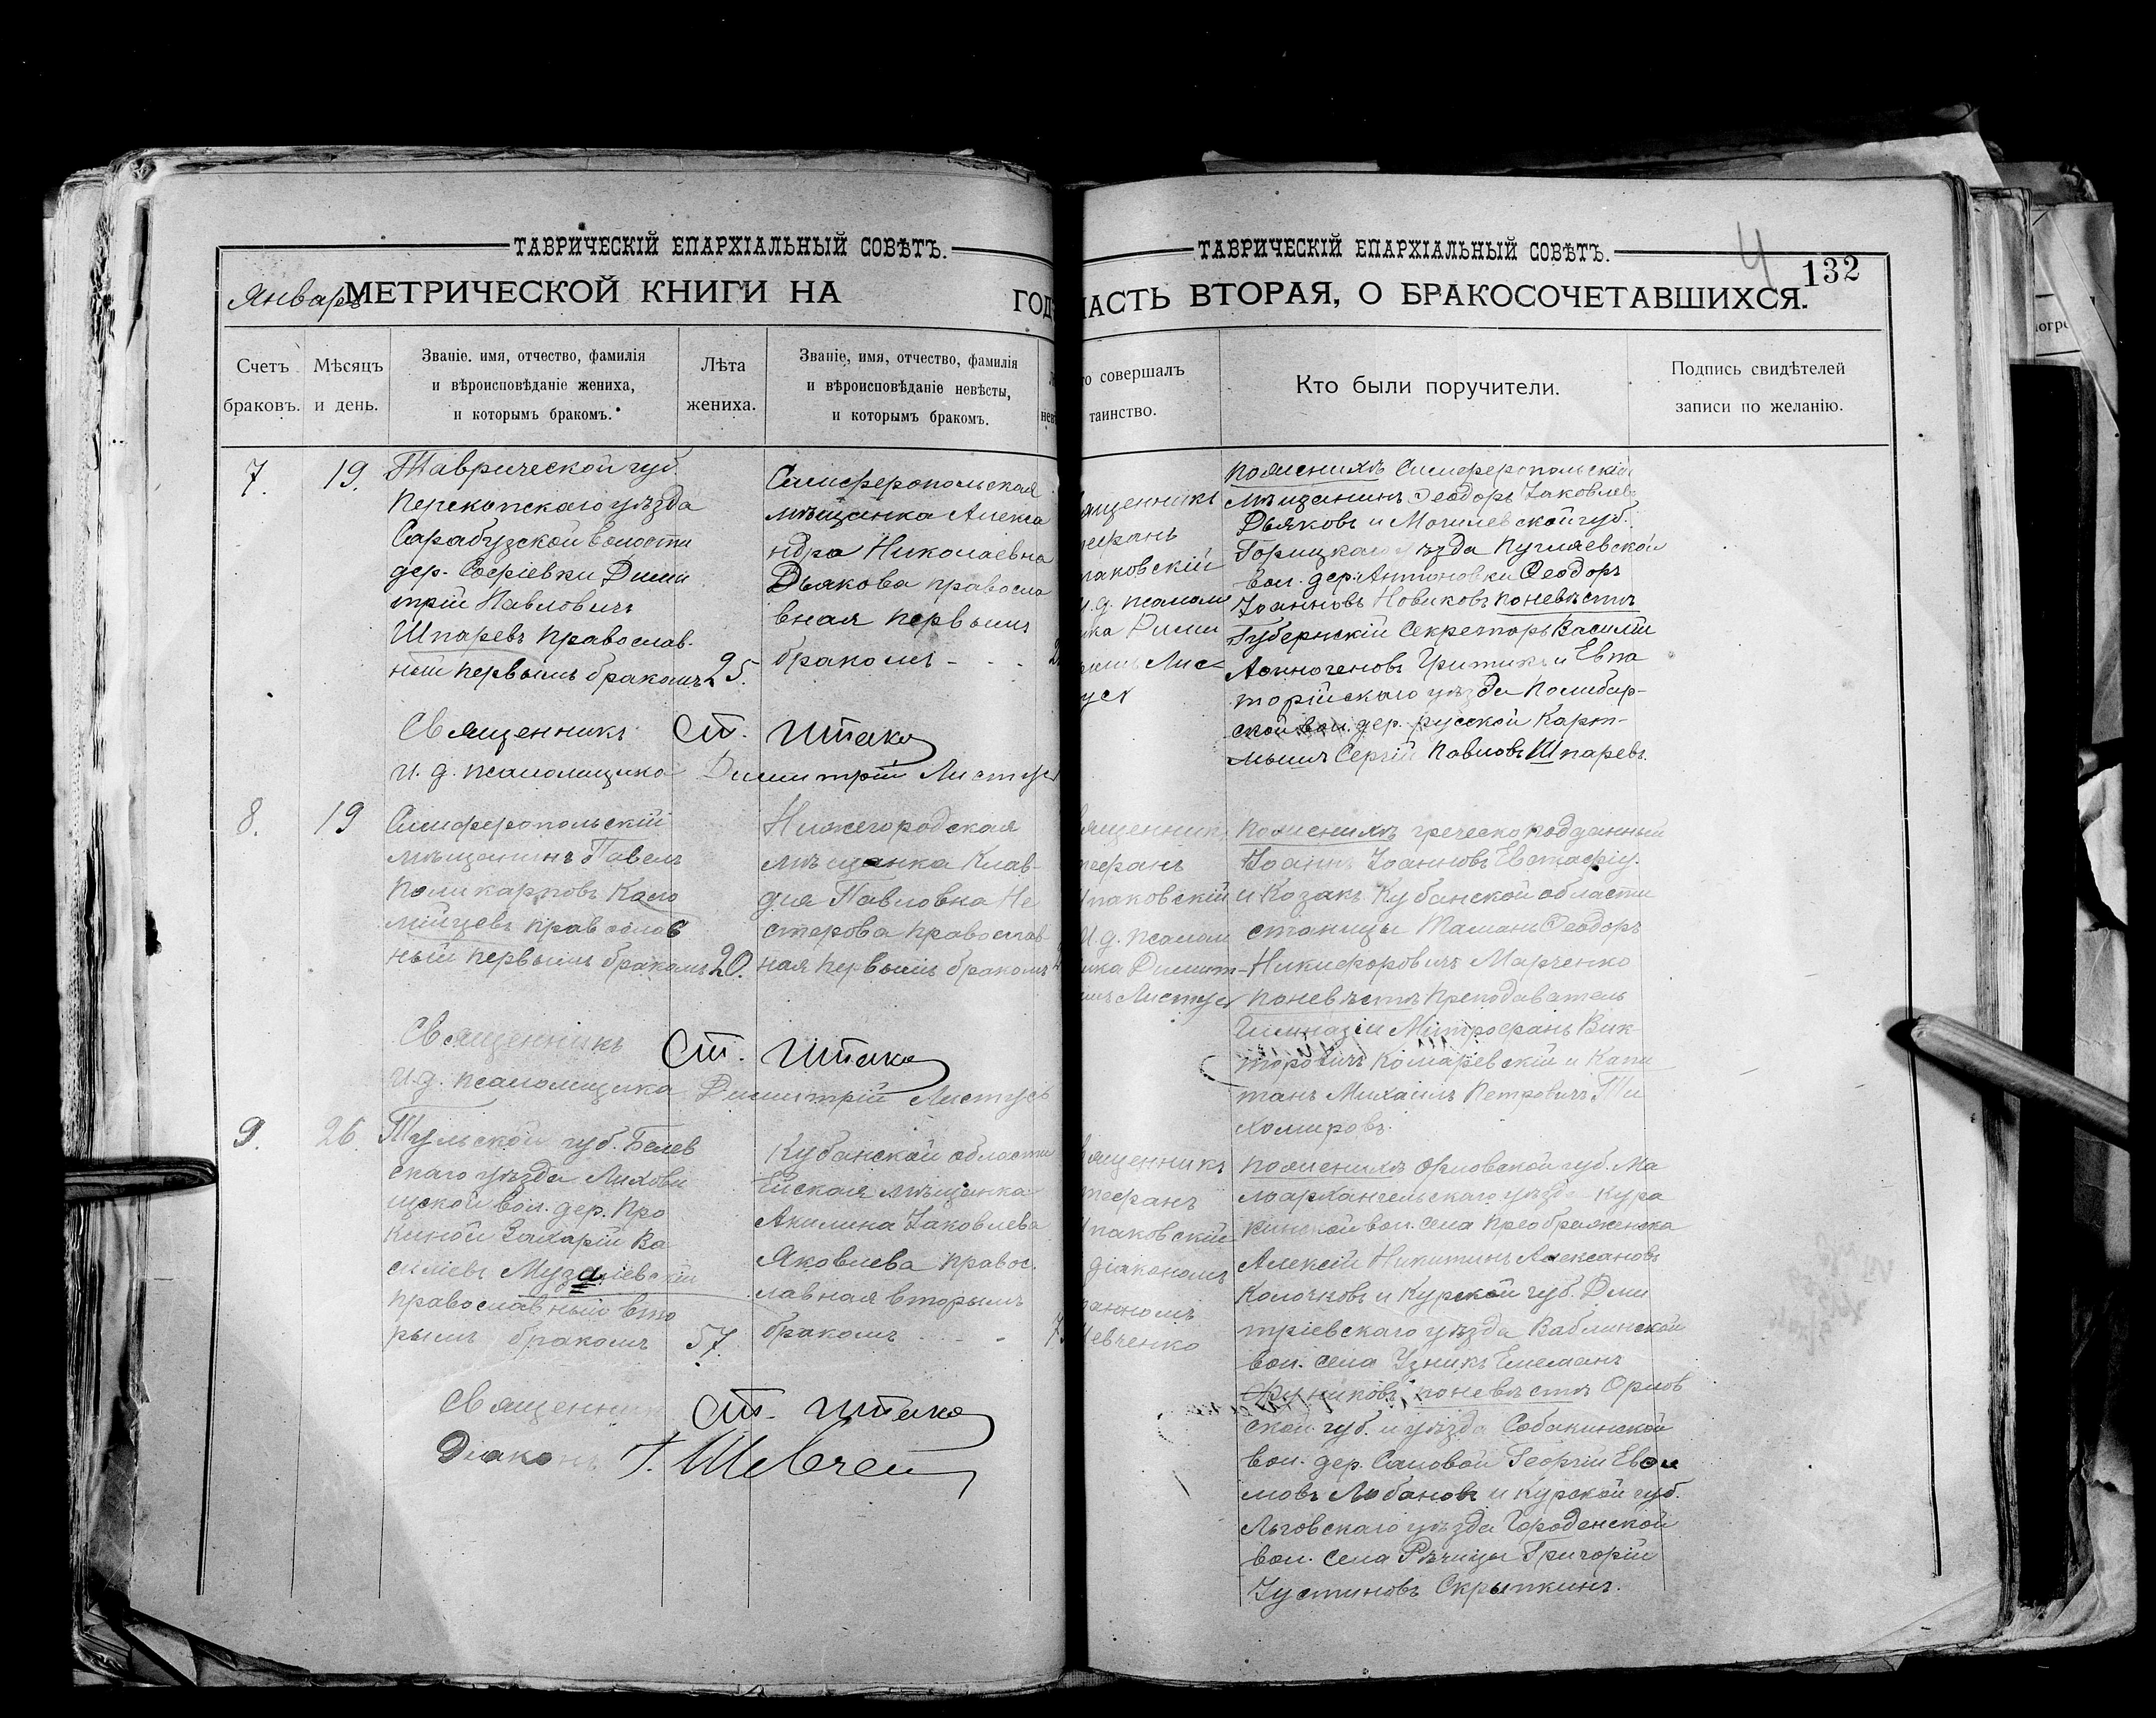 ТАВРИЧЕСКІЙ ЕПАРХІАЛЬНЫЙ СОВѢТЪ.
Январь МЕТРИЧЕСКОЙ КНИГИ НА ГОД
Счетъ браковъ.
Мѣсяцъ и день.
Званіе. имя, отчество, фамилія
и вѣроисповѣданіе жениха,
и которымъ бракомъ.
Лѣта
жениха.
Званіе, имя, отчество, фамилія
и вѣроисповѣданіе невѣсты,
и которымъ бракомъ.
7.
19.
Таврической губ.
Перекопскаго уѣзда
Сарабузской волости
дер. Софіевки Дими
трій Павловичъ
Шпаревъ православ-
ный первымъ бракомъ
25.
Симферопольская
мѣщанка Алекса
ндра Николаевна
Дьякова правосла
вная первымъ
бракомъ - - -
Священникъ Ст. Шпако
И. д. псаломщика Димитрій Листус
8.
19
Симферопольскій
мѣщанинъ Павелъ
Поликарповъ Коло
мійцевъ православ
ный первымъ бракомъ
20.
Нижегородская
мѣщанка Клав-
дия Павловна Не
стерова православ-
ная первымъ бракомъ
Священникъ Ст. Шпако
И. д. псаломщика Димитрій Листусъ
9.
26.
Тульской губ. Белев
скаго уѣзда Лихови
щской вол. дер. Про
киной Захарій Ва
силіевъ Музалевскій
православный вто
рымъ бракомъ
57.
Кубанской области
Ейская мѣщанка
Акилина Іаковлева
Яковлева правос.
лавная вторымъ
бракомъ - - -
Священник Ст. Шпако
Діаконъ І. Шевчен
ТАВРИЧЕСКІЙ ЕПАРХІАЛЬНЫЙ СОВѢТЪ.
4
132
ЧАСТЬ ВТОРАЯ, О БРАКОСОЧЕТАВШИХСЯ.
то совершалъ
таинство.
Кто были поручители.
Подпись свидѣтелей
записи по желанію.
ященникъ
ефанъ
паковскій
И. д. псалом
ика Дими
ріемъ Лис-
уся
По женихѣ Симферопольскій
мѣщанинъ Ѳеодоръ Іаковлев
Дьяковъ и Могилевской губ.
Горицкаго уѣзда Пугляевской
вол. дер. Антоновки Ѳеодоръ
Іоанновъ Новиковъ по невѣстѣ
Губернскій Секретарь Василій
Аѳиногеновъ Притикъ и Евпа
торійскаго уѣзда Полибар-
ской вол. дер. русской Карт-
мышъ Сергій Павловъ Шпаревъ.
ященник
тефанъ
Шпаковскій
И. д. псалом
ика Димит-
емъ Листуся
По женихѣ греческоподданный
Іоаннъ Іоанновъ Евстафіу.
и Козакъ Кубанской области
станицы Тамань Ѳеодоръ
Никифоровичъ Марченко
по невѣстѣ Преподаватель
Гимназіи Митрофанъ Вик-
торовичъ Комаревскій и Капи
танъ Михаилъ Петровичъ Ти
хомировъ.
ященникъ
тефанъ
Шпаковскій
діакономъ
анномъ
Шевченко
По женихѣ Орловской губ. Ма
лоархангельскаго уѣзда Кура
кинской вол. села Преображенска
Алексѣй Никитинъ Алексановъ
Колочковъ и Курской губ. Дми
тріевскаго уѣзда Ваблинской
вол. села Узникъ Емеманъ
по невѣстѣ Орлов
ской губ. и уѣзда Собакинской
вол. дер. Саловой Георгій Евои
мовъ Лобановъ и Курской губ.
Льговскаго уѣзда Городенской
вол. села Рѣчицы Григорій
Іустиновъ Скрыпкинъ.